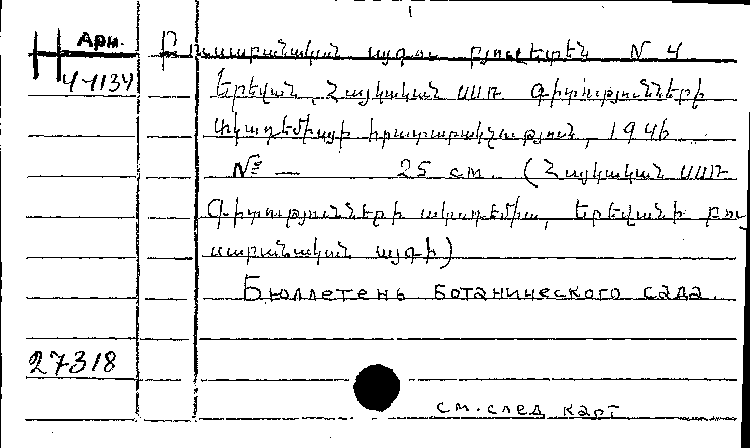 Арм. Բուսաբանական այգու բյուլետեն N 4
4-1134 Երեվան, Հայկական ՍՍՌ Գիտությունների
Ակադեմիայի հրատարակչություն, 1946
№ — 25 см. (Հայկական ՍՍՌ
Գիտությունների ակադեմիա, Երեվանի բու
սաբանական այգի)
Бюллетень ботанического сада.
27318
см. след карт